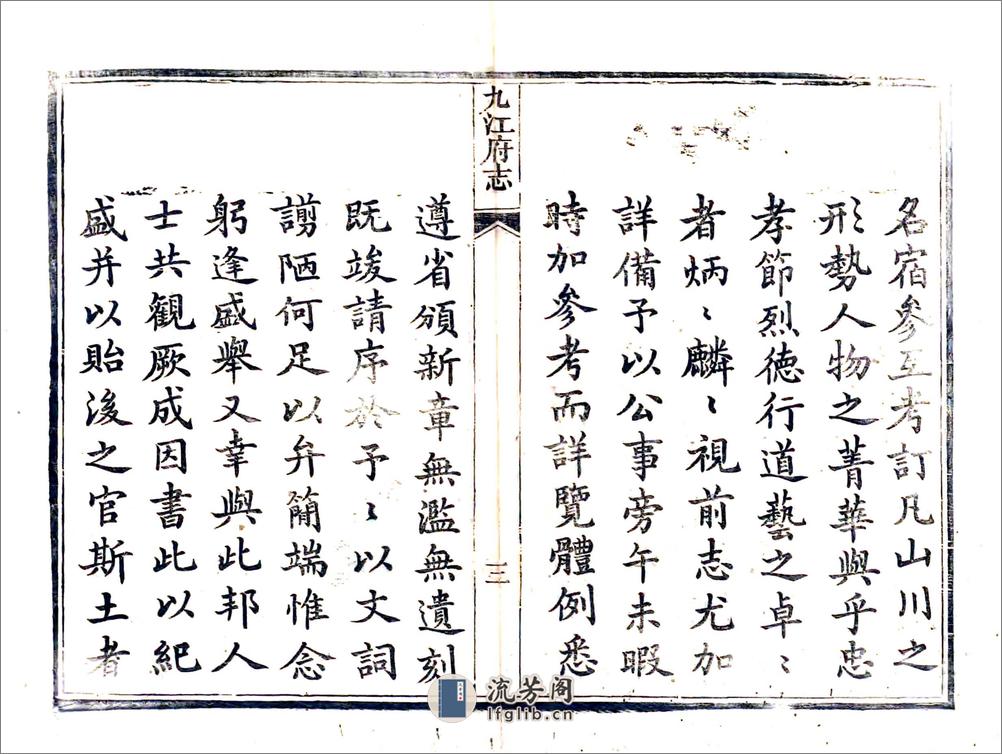 名宿參互考訂凡山川之
形勢人物之菁華與乎忠
孝節烈德行道藝之卓〻
者炳〻麟〻視前志尤加
詳備予以公事旁午未暇
時加參考而詳覽體例悉
九江府志
三
遵省頒新章無濫無遺刻
既竣請序於予〻以文詞
謭陋何足以弁簡端惟念
躬逢盛舉又幸與此邦人
士共觀厥成因書此以紀
盛并以貽後之官斯土者
流芳阁
lfglib.cn